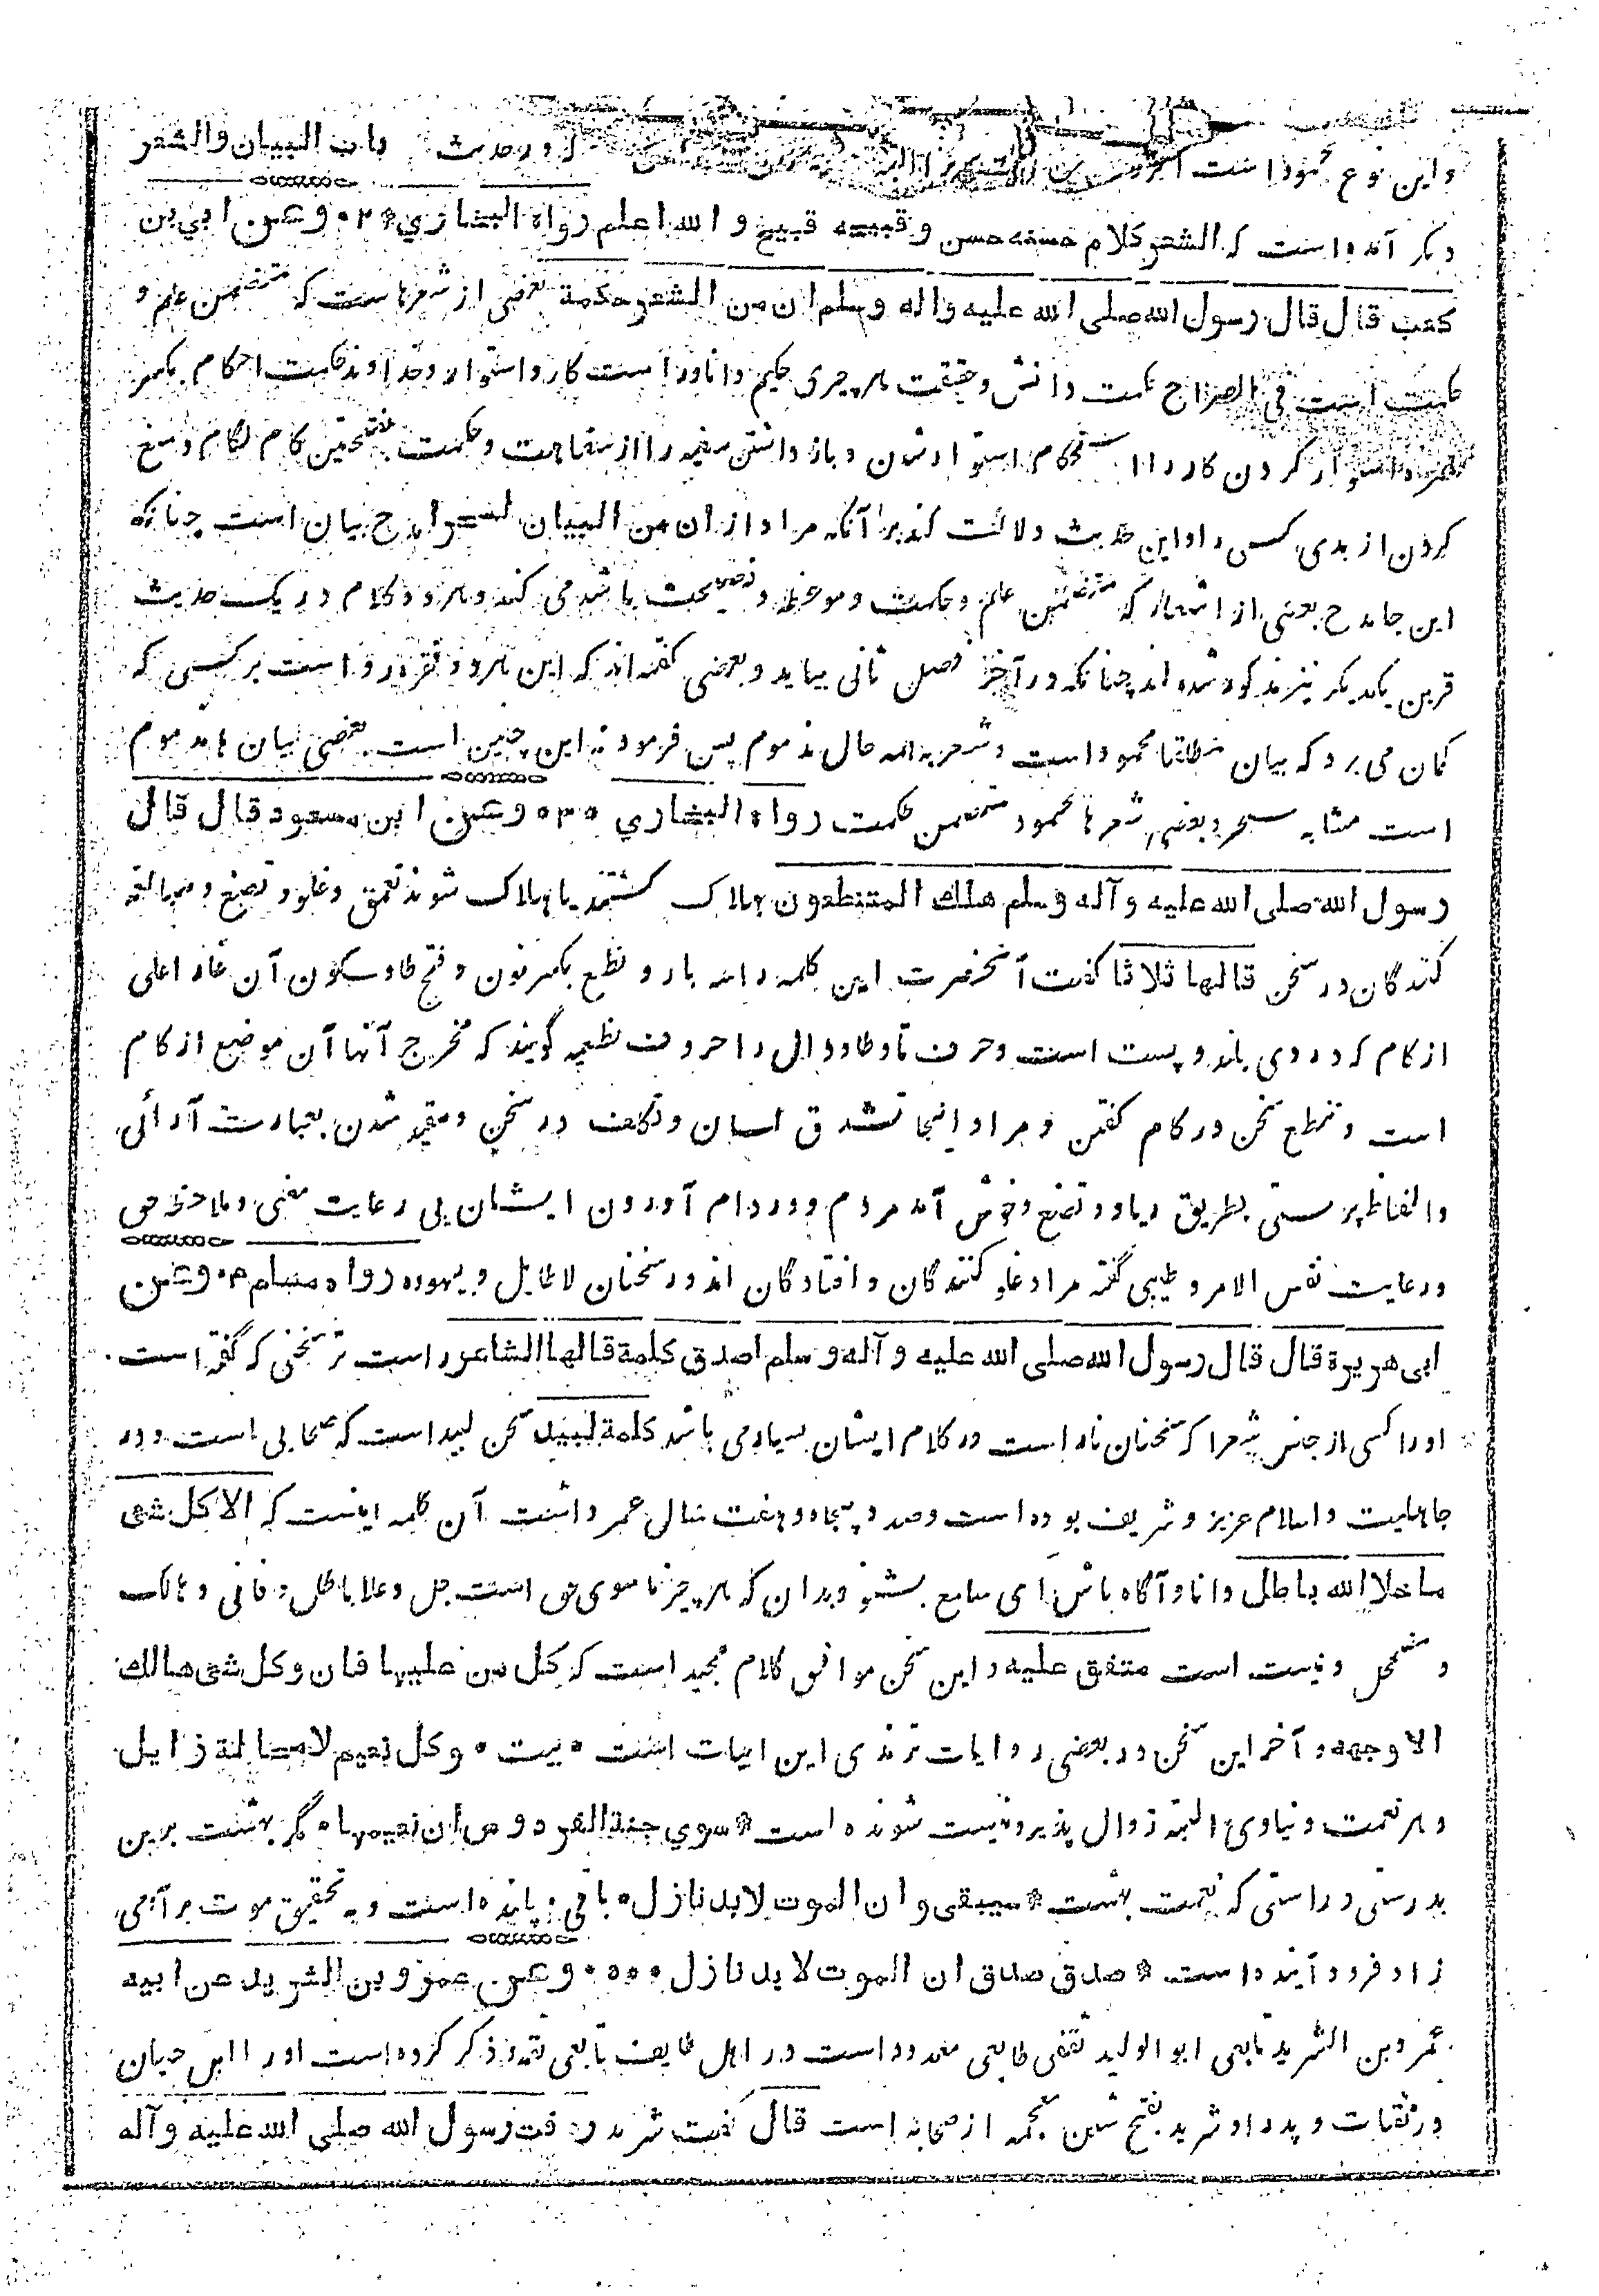 باب البیان والشعر
واین نوع محمود است در حدیث
دیگر آمده است که الشعر کلام حسنه حسن وقبیحه قبیح و الله اعلم رواه البخاري * ۲ • وعن ابي بن
کعب قال قال رسول الله صلی الله علیه واله وسلم ان من الشعر حکمة بعضی از شعرها ست که متضمن علم و
حکمت است فی الصراح حکمت دانش وحقیقت هر چیزی حکیم دانا و راست کار و استوار و خداوند حکمت احکام بکسر
همزه استوار کردن کار را استحکام استوار شدن و باز داشتن سفیه را از سفاهت و حکمت بفتحتین کام لگام و منع
کردن از بدی کسی را و این حدیث دلالت کند بر آنکه مراد از ان من البیان لسحرا مدح بیان است چنانکه
این جا مدح بعضی از اشعار که متضمن علم و حکمت و موعظه و نصیحت باشد می کند و هر دو کلام در یک حدیث
قرین یکدیگر نیز مذکور شده اند چنانکه در آخر فصل ثانی بیاید و بعضی گفته اند که این هر دو فقره رد است بر کسی که
گمان می برد که بیان مطلقا محمود است و شعر بهمه حال مذموم پس فرمود نه این چنین است بعضی بیان ها مذموم
است مشابه سحر و بعضی شعر ها محمود متضمن حکمت رواه البخاري • ۳ • وعن ابن مسعود قال قال
رسول الله صلی الله علیه وآله وسلم هلك المتنطعون هلاک گشتند یا هلاک شوند تعمق و غلو و تصنع و مبالغه
کنندگان در سخن قالها ثلاثا گفت آنحضرت این کلمه را سه بار و نطع بکسر نون و فتح طا و سکون آن غار اعلی
از کام که در وی بلند و پست است و حرف تا و طا و دال را حروف نطعیه گویند که مخرج آنها آن موضع از کام
است و تنطع سخن در کام گفتن و مراد اینجا تشدق لسان و تکلف در سخن و مقید شدن بعبارت آرائی
و الفاظ پرستی بطریق ریا و تصنع و خوش آمد مردم و در دام آوردن ایشان بی رعایت معنی و ملاحظه حق
و رعایت نفس الامر و طیبی گفته مراد غلو کنندگان و افتادگان اند در سخنان لا طایل و بیهوده رواه مسلم ۴ • وعن
ابی هریرة قال قال رسول الله صلی الله علیه وآله وسلم اصدق کلمة قالها الشاعر راست تر سخنی که گفته است
او را کسی از جنس شعرا که سخنان ناراست در کلام ایشان بسیار می باشد کلمة لبید سخن لبید است که صحابی است و در
جاهلیت و اسلام عزیز و شریف بوده است و صد و پنجاه و هفت سال عمر داشت آن کلمه اینست که الا کل شی
ما خلا الله باطل دانا و آگاه باش ای سامع بشنو و بدان که هر چیز ما سوی حق است جل و علا باطل و فانی و هالک
و مضمحل و نیست است متفق علیه و این سخن موافق کلام مجید است که کل من علیها فان و کل شی هالك
الا وجهه و آخر این سخن در بعضی روایات ترمذی این ابیات است • بیت • وکل نعیم لا محالة زایل
و هر نعمت دنیاوی البته زوال پذیر و نیست شونده است * سوي جنة الفردوس ان نعیمها • مگر بهشت برین
بدرستی و راستی که نعمت بهشت * سیبقی و ان الموت لابد نازل • باقی پاینده است و به تحقیق موت بر آدمی
زاد فرود آینده است * صدق صدق ان الموت لابد نازل • ۵ • وعن عمرو بن الشرید عن ابیه
عمرو بن الشرید تابعی ابو الولید ثقفی طایفی معدود است در اهل طایف تابعی ثقه ذکر کرده است او را ابن حبان
در ثقات و پدر او شرید بفتح شین معجمه از صحابه است قال گفت شرید ردفت رسول الله صلی الله علیه وآله